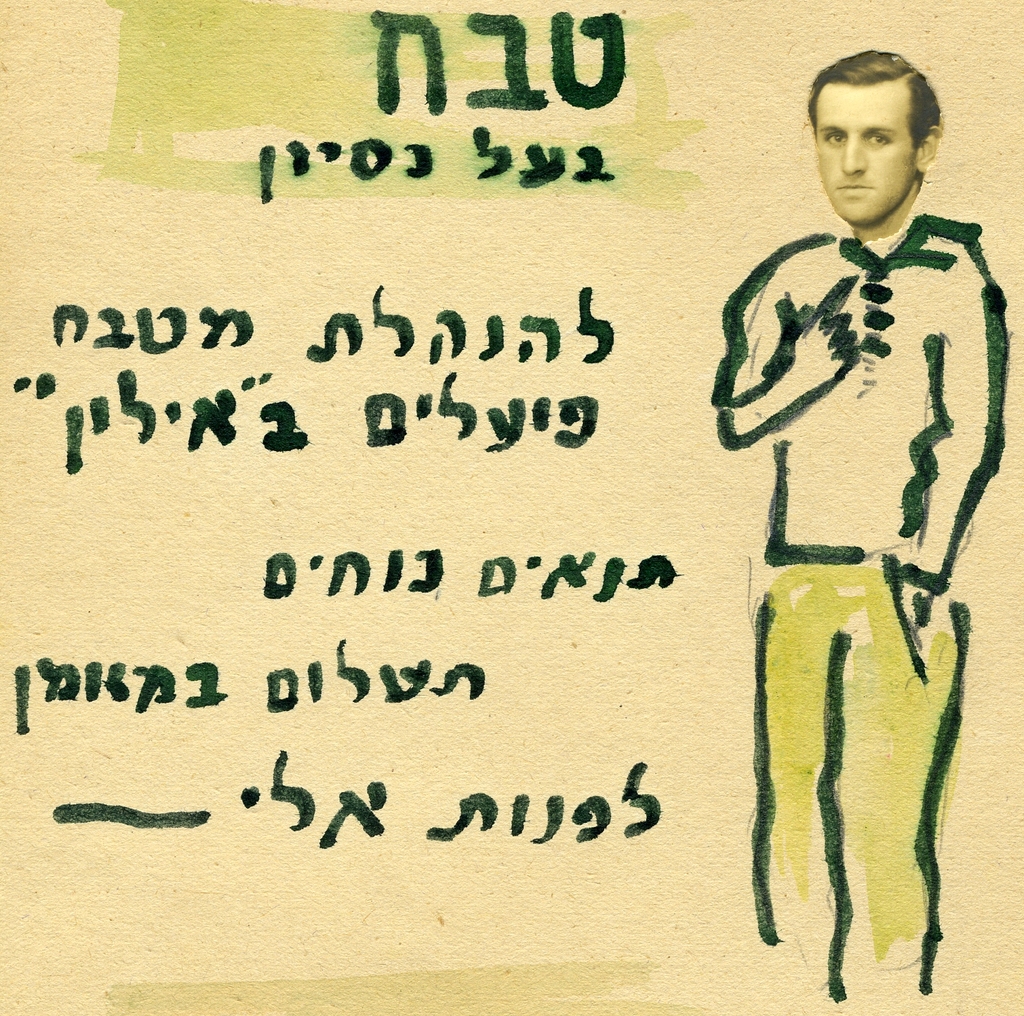 טבח
בעל נסיון
להנהלת מטבח
פועלים ב"אילין"
תנאים נוחים
תשלום במזומן
לפנות אלי